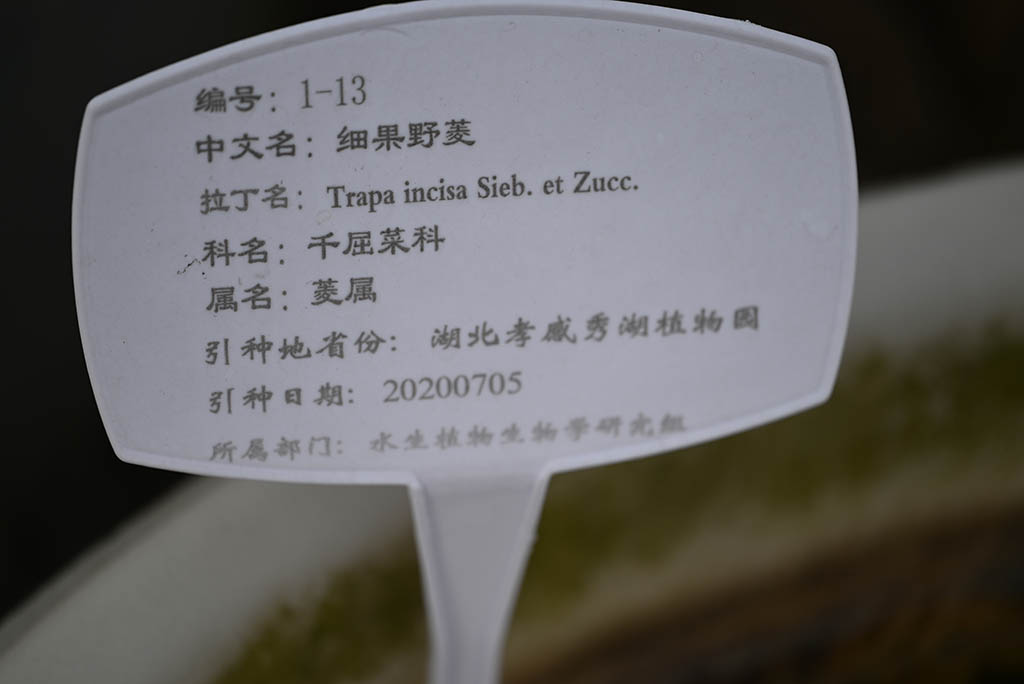 编号：1-13
中文名：细果野菱
拉丁名：Trapa incisa Sieb. et Zucc.
科名：千屈菜科
属名：菱属
引种地省份：湖北孝感秀湖植物园
引种日期：20200705
所属部门：水生植物生物学研究组